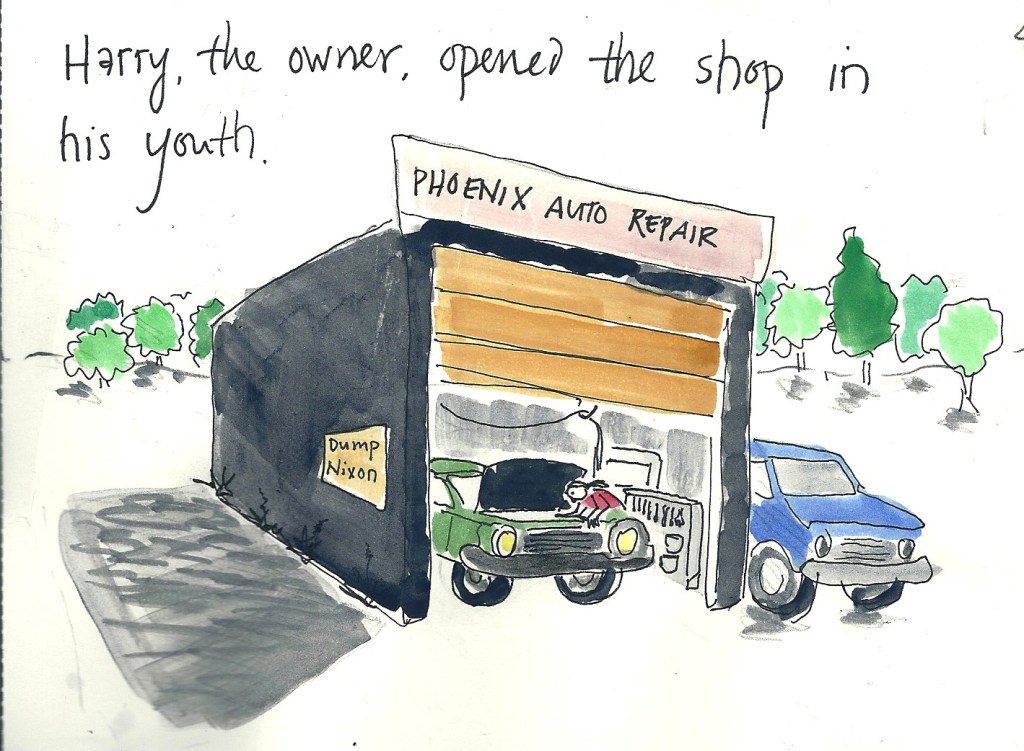 Harry, the owner, opened the shop in
his youth.
PHOENIX AUTO REPAIR
Dump
Nixon